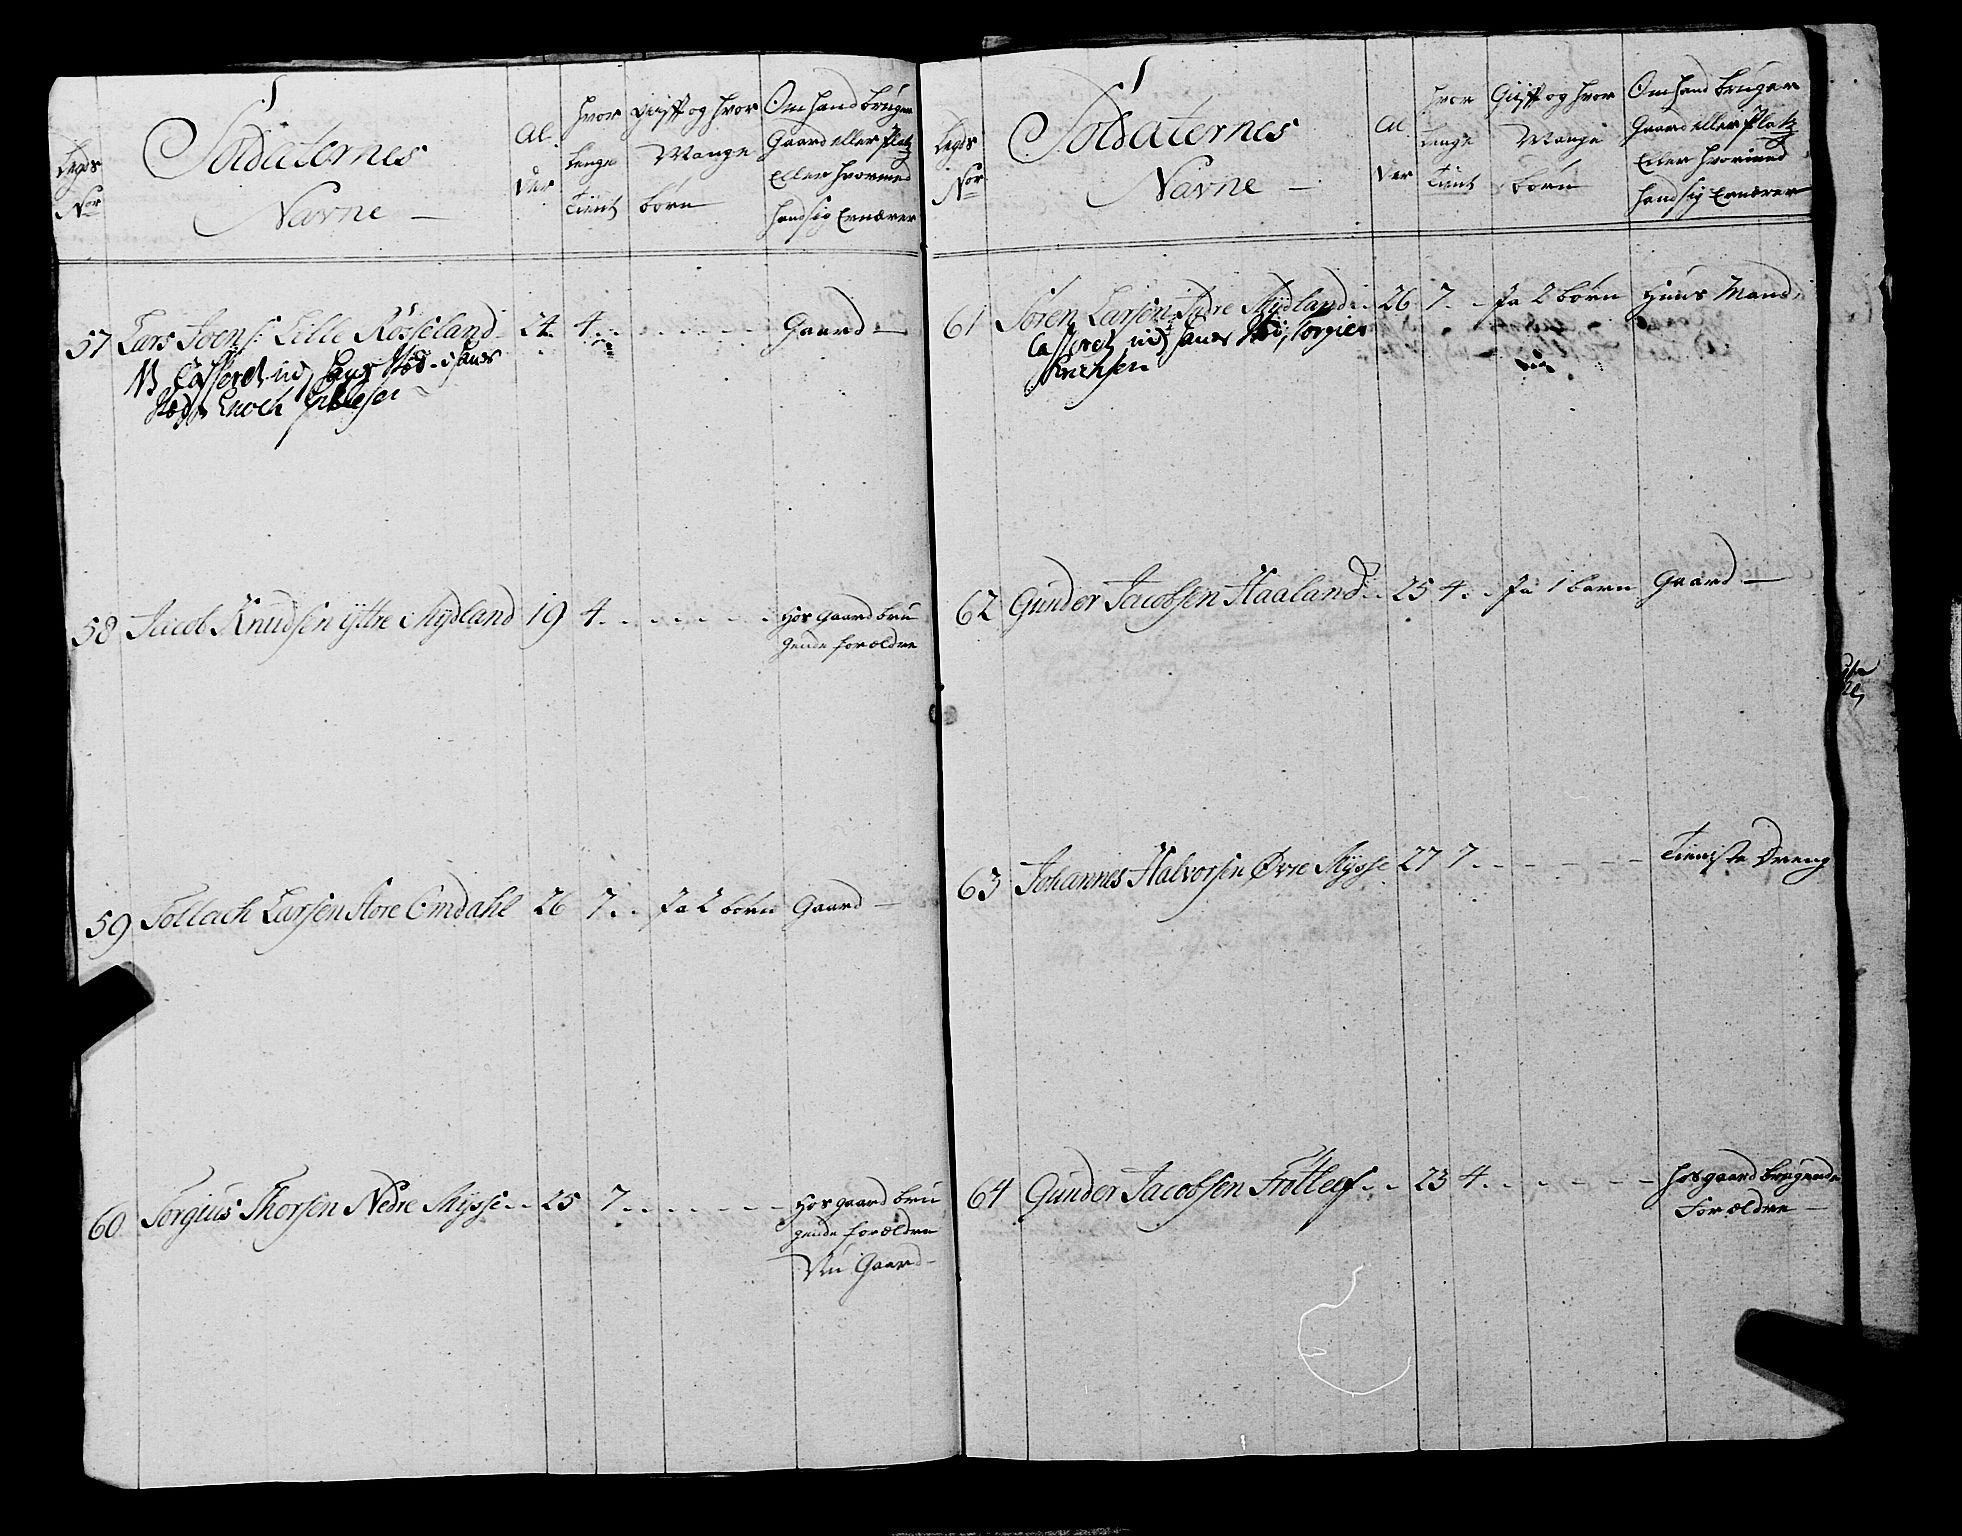 Legds
Nor
Soldaternes
Navne —
Al
der
Hvor
lenge
Tient
Gift og hvor
Mange
børn
Om hand bruger
Gaard eller Platz
Eller hvormed
hand sig Ernærer
57 Lars Svens: Lille Rosseland 24 4 Gaard —
NB Casseret udj hans Stæd
Enoch
58 Jacob Knudsen ÿttre Mÿdland 19 4 Hos gaard bru
gende forældre
59 Tollach Larsen Store Omdahl 26 7 Ja 2 børn Gaard —
60 Torgius Thorsen Nedre Mÿsse 25 7 Hos gaard bru
gende forældre
Nu Gaard —
Legds
Nor
Soldaternes
Navne —
Al
der
Hvor
lenge
Tient
Gift og hvor
Mange
børn
Om hand bruger
Gaard eller Platz
Eller hvormed
hand sig Ernærer
61 Søren Larsen Mÿdland 26 7 Ja 2 børn Huus Mand
Casseret udj hans Torgies
62 Gunder Jacobsen Haaland 25 4 Ja 1 barn Gaard —
63 Johannes Halvorsen Øvre Mÿsse 27 7 Tieniste Dreng
64 Gunder Jacobsen 23 4 Hos gaard brugende
Forældre —